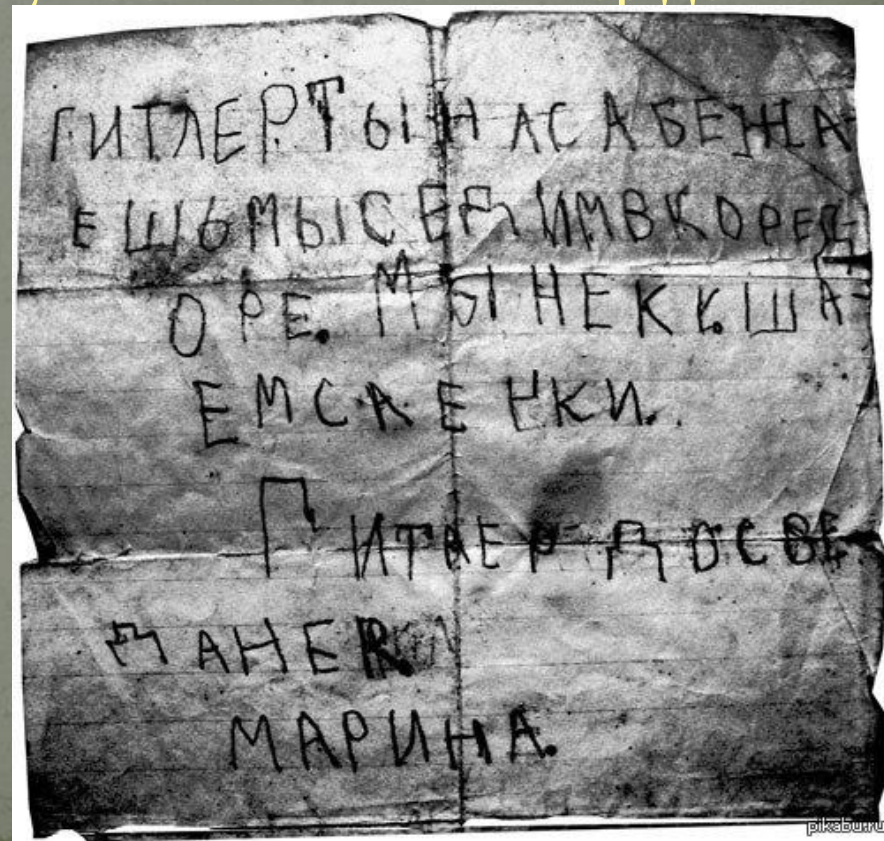 ГИТЛЕР ТЫ НАС АБЕЖА
ЕШЬ МЫ СЕДИМ В КОРЕД
ОРЕ. МЫ НЕ КУША
ЕМ САЕНКИ.
ГИТЛЕР ДОСВЕ
ДАНЕЯ
МАРИНА.
pikabu.ru